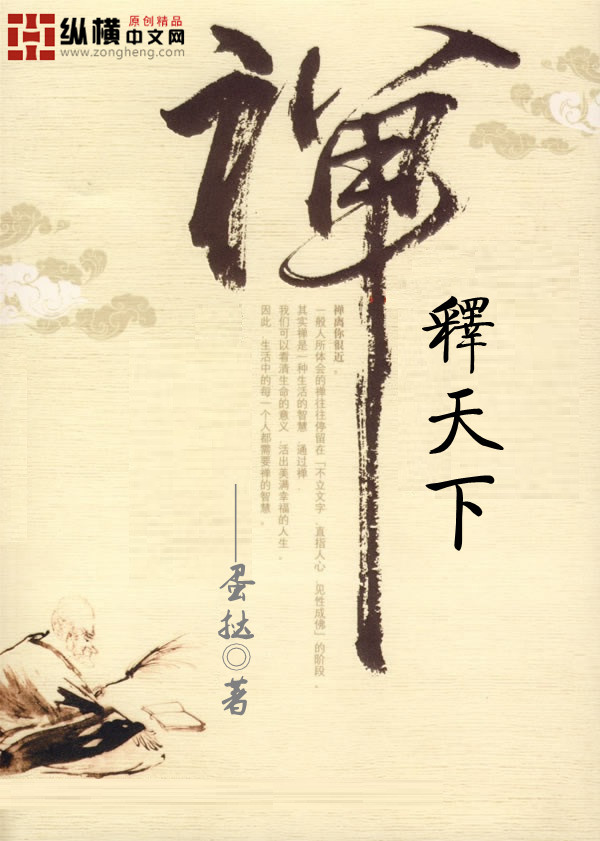 纵横
原创精品
中文网
www.zongheng.com
禅
釋天下
禅离你很近。
一般人所体会的禅往往停留在「不立文字,直指人心,见性成佛」的阶段。
其实禅是一种生活的智慧,通过禅,
我们可以看清生命的意义,活出美满幸福的人生。
因此,生活中的每一个人都需要禅的智慧。
——蛋挞◎著